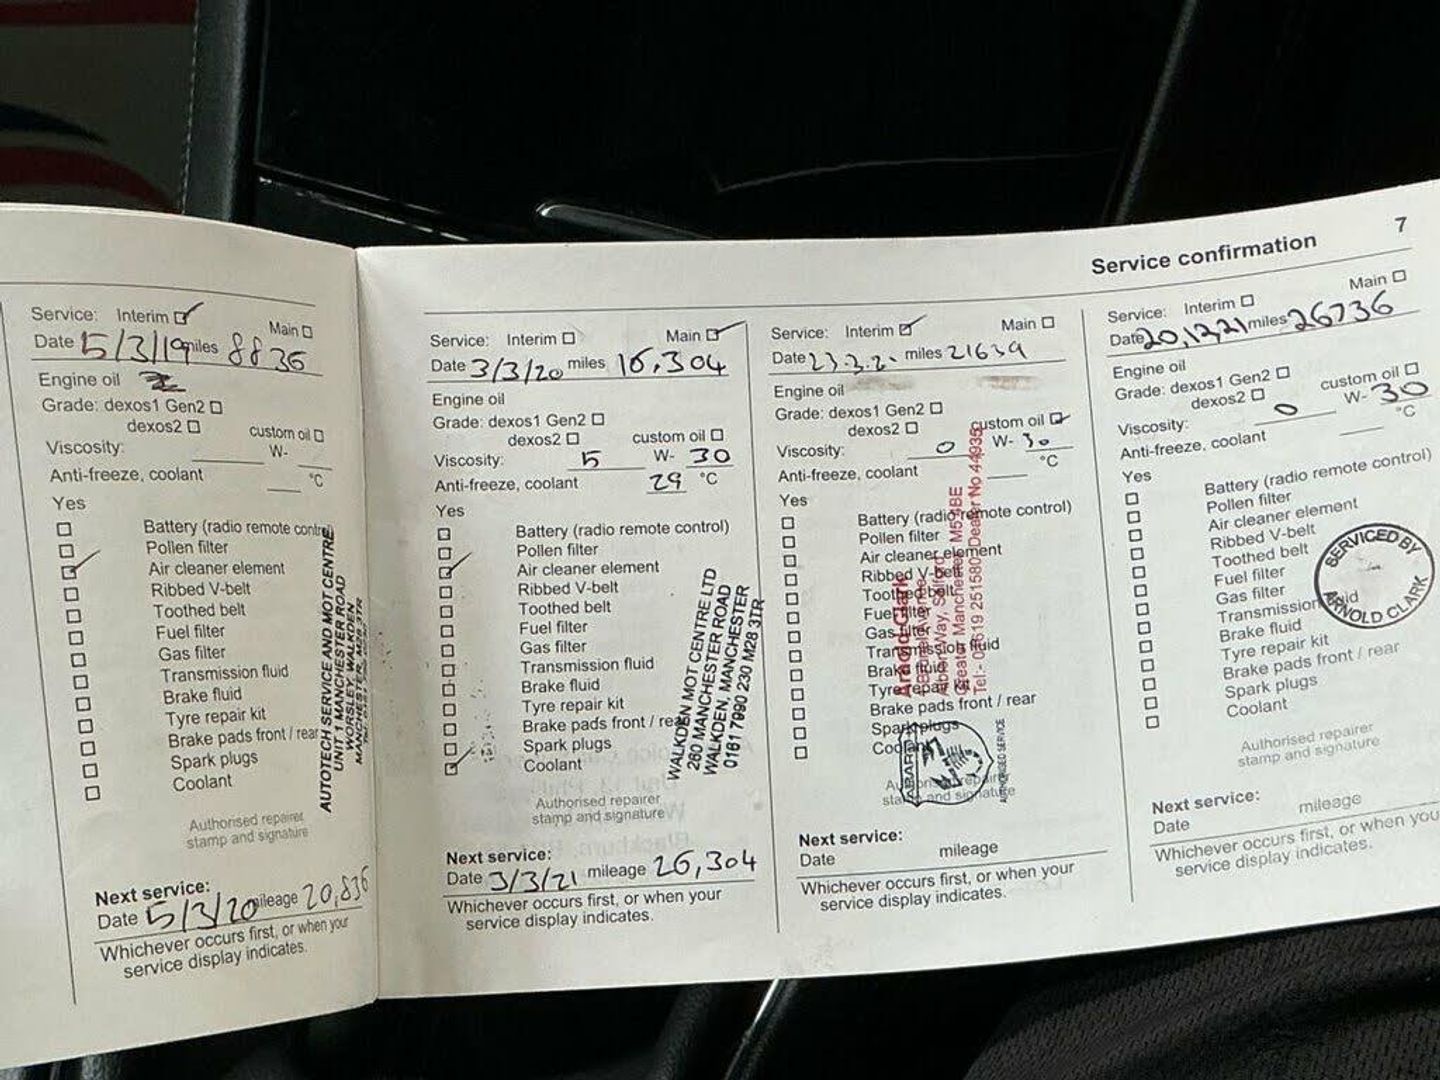 7
Service confirmation
Service: Interim Main
Date 5/3/19 miles 8836
Engine oil
Grade: dexos1 Gen2
dexos2 custom oil
Viscosity: W-
Anti-freeze, coolant °C
Yes
Battery (radio remote control)
Pollen filter
Air cleaner element
Ribbed V-belt
Toothed belt
Fuel filter
Gas filter
Transmission fluid
Brake fluid
Tyre repair kit
Brake pads front / rear
Spark plugs
Coolant
AUTOTECH SERVICE AND MOT CENTRE
UNIT 1 MANCHESTER ROAD
WORSLEY, WALKDEN
MANCHESTER, M28 3TR
Authorised repairer
stamp and signature
Next service:
Date 5/3/20 mileage 20,836
Whichever occurs first, or when your
service display indicates.
Service: Interim Main
Date 3/3/20 miles 16,304
Engine oil
Grade: dexos1 Gen2
dexos2 custom oil
Viscosity: 5 W- 30
Anti-freeze, coolant 29 °C
Yes
Battery (radio remote control)
Pollen filter
Air cleaner element
Ribbed V-belt
Toothed belt
Fuel filter
Gas filter
Transmission fluid
Brake fluid
Tyre repair kit
Brake pads front / rear
Spark plugs
Coolant
WALKDEN MOT CENTRE LTD
260 MANCHESTER ROAD
WALKDEN, MANCHESTER
0161 7990 230 M28 3TR
Authorised repairer
stamp and signature
Next service:
Date 3/3/21 mileage 26,304
Whichever occurs first, or when your
service display indicates.
Service: Interim Main
Date 23.3.2. miles 21639
Engine oil
Grade: dexos1 Gen2
dexos2 custom oil
Viscosity: 0 W- 30
Anti-freeze, coolant °C
Yes
Battery (radio remote control)
Pollen filter
Air cleaner element
Ribbed V-belt
Toothed belt
Fuel filter
Gas filter
Transmission fluid
Brake fluid
Tyre repair
Brake pads front / rear
Spark plugs
Coolant
Arnold Clark
Way, Salford
Greater Manchester M5
Dealer No
ABARTH
AUTHORISED SERVICE
Authorised repairer
stamp and signature
Next service:
Date mileage
Whichever occurs first, or when your
service display indicates.
Service: Interim Main
Date 20,12,21 miles 26736
Engine oil
Grade: dexos1 Gen2
dexos2 custom oil
Viscosity: 0 W- 30
Anti-freeze, coolant °C
Yes
Battery (radio remote control)
Pollen filter
Air cleaner element
Ribbed V-belt
Toothed belt
Fuel filter
Gas filter
Transmission fluid
Brake fluid
Tyre repair kit
Brake pads front / rear
Spark plugs
Coolant
SERVICED BY
ARNOLD CLARK
Authorised repairer
stamp and signature
Next service:
Date mileage
Whichever occurs first, or when you
service display indicates.